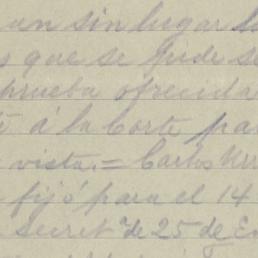 un sin lugar
que se pide
prueba ofrecida
á la Corte para
vista. = Carlos
fijó para el 14
Secret° de 25 de